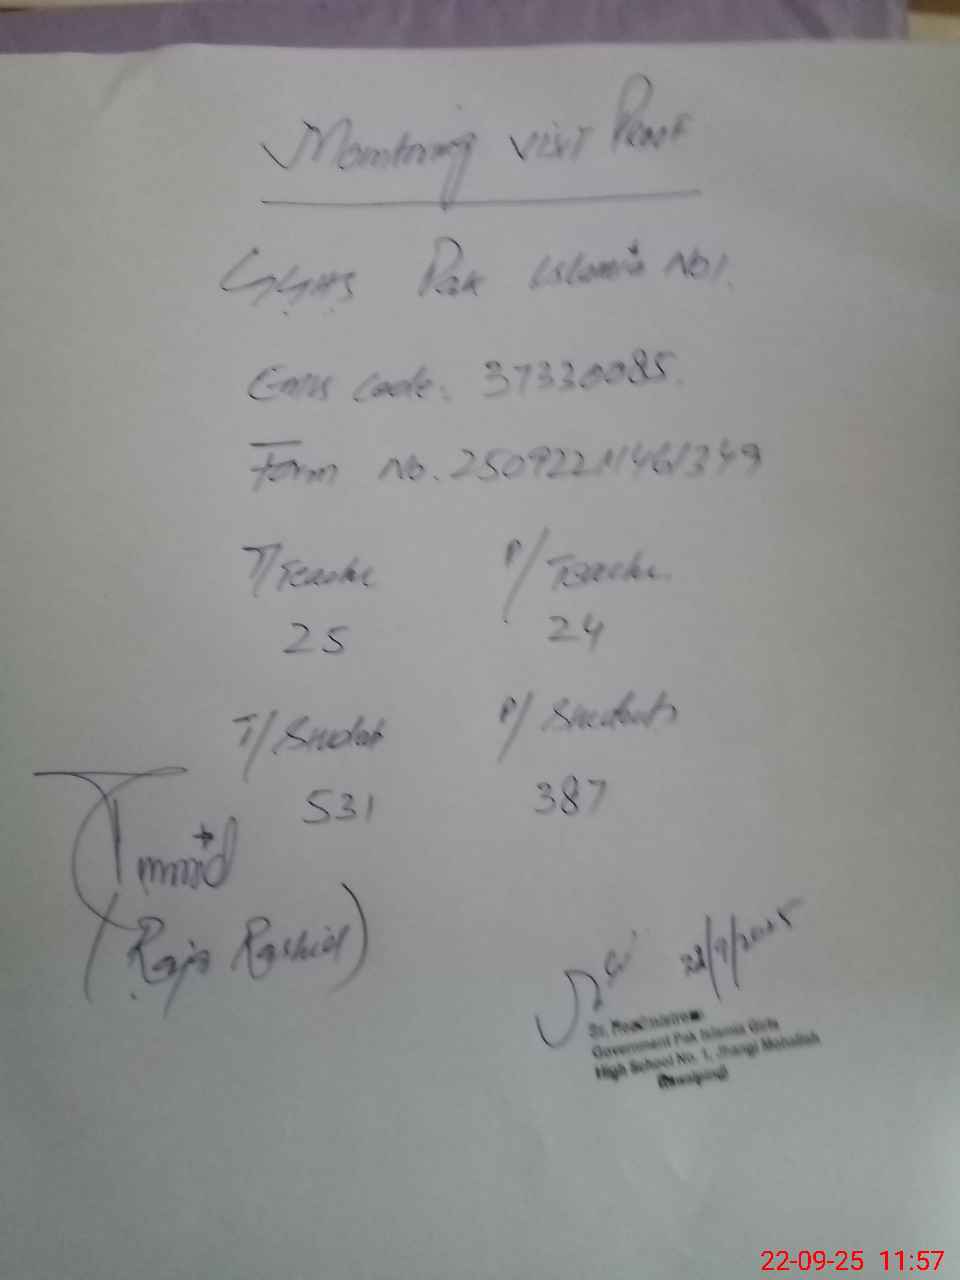 Monitoring Visit Proof
GGHS Pak Islamia No1.
Emis Code: 37330085.
Form No. 250922111461349
T/Teacher P/Teacher
25 24
T/Student P/Students
531 387
(Raja Rashid)
22/9/2025
Sr. Headmistress
Government Pak Islamia Girls
High School No. 1, Jhangi Mohallah
Rawalpindi
22-09-25 11:57